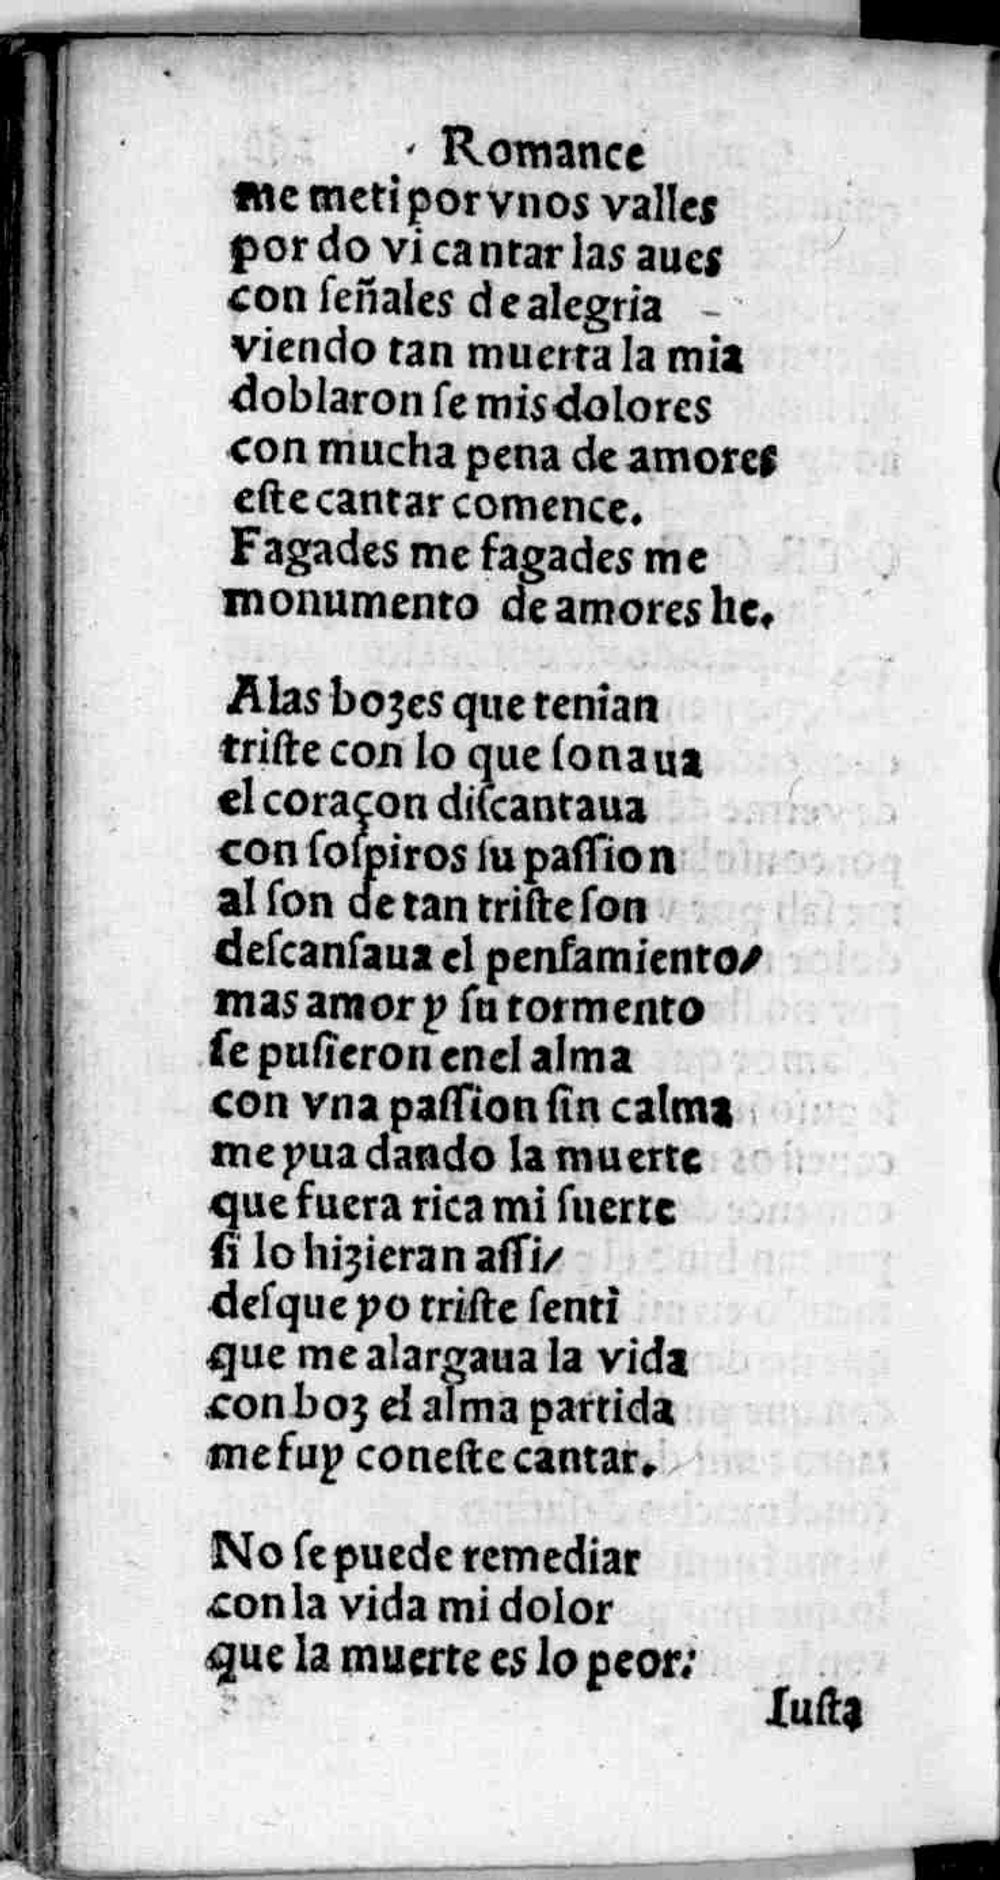 Romance
me meti por vnos valles
por do vi cantar las aues
con ſeñales de alegria
viendo tan muerta la mia
doblaron ſe mis dolores
con mucha pena de amores
eſte cantar comence.
Fagades me fagades me
monumento de amores he.
A las bozes que tenian
triſte con lo que ſonaua
el coraçon diſcantaua
con ſoſpiros ſu paſſion
al ſon de tan triſte ſon
deſcanſaua el penſamiento/
mas amor y ſu tormento
ſe puſieron enel alma
con vna paſſion ſin calma
me yua dando la muerte
que fuera rica mi ſuerte
ſi lo hizieran aſſi/
deſque yo triſte ſenti
que me alargaua la vida
con boz el alma partida
me fuy coneſte cantar.
No ſe puede remediar
con la vida mi dolor
que la muerte es lo peor:
Iuſta